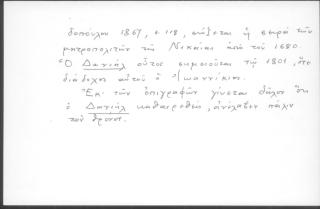 δοπούλου 1867, σ. 118, αὐξεται ἡ σειρὰ τῶν
μητροπολιτῶν τῆς Νικαίας ἀπὸ τοῦ 1680.
Ὁ Δανιὴλ οὗτος σημειοῦται τῷ 1801, ὅτε
διάδοχος αὐτοῦ ὁ Ἰωαννίκιος.
Ἐκ τῶν ἐπιγραφῶν γίνεται δῆλον ὅτι
ὁ Δανιὴλ καθαιρεθείς, ἀνέλαβεν πάλιν
τὸν θρόνον.